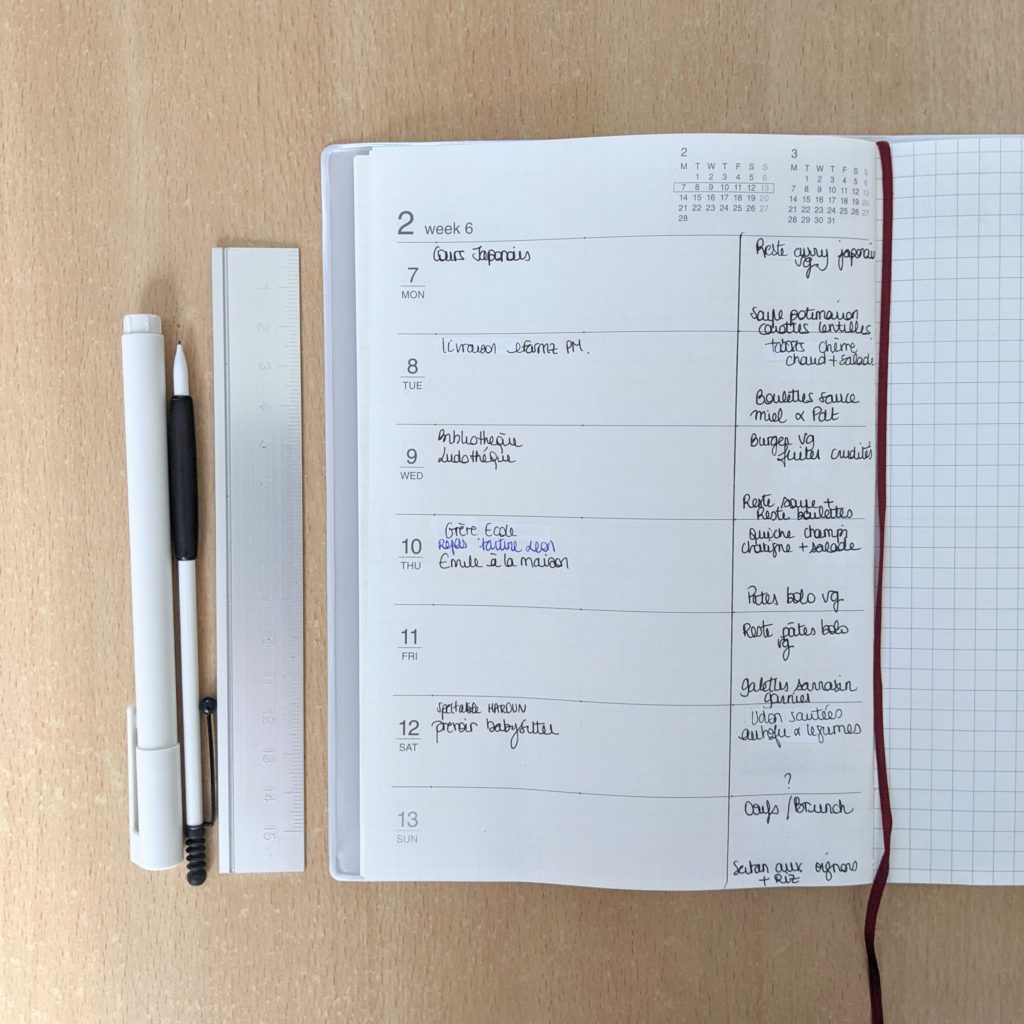 2
M T W T F S S
1 2 3 4 5 6
7 8 9 10 11 12 13
14 15 16 17 18 19 20
21 22 23 24 25 26 27
28
3
M T W T F S S
1 2 3 4 5 6
7 8 9 10 11 12 13
14 15 16 17 18 19 20
21 22 23 24 25 26 27
28 29 30 31
2 week 6
7
MON
Cours Japonais
Reste curry japonais
vg
Soupe potimarron
carottes lentilles
8
TUE
livraison efarmz PM.
toasts chèvre
chaud + salade
Boulettes sauce
miel & Pdt
9
WED
Bibliothèque
Ludothèque
Burger vg
frites crudités
Reste soupe +
Reste boulettes
10
THU
Grève Ecole
Repas tartine Leon
Emile à la maison
Quiche champi
+ salade
Pâtes bolo vg
11
FRI
Reste pâtes bolo
vg
galettes sarrasin
garnies
12
SAT
Spectacle HAROUN
prévoir babysitter
Udon sautées
au tofu & légumes
?
13
SUN
Oeufs / Brunch
Seitan aux oignons
+ RIZ
1
2
3
4
5
6
7
8
9
10
11
12
13
14
15